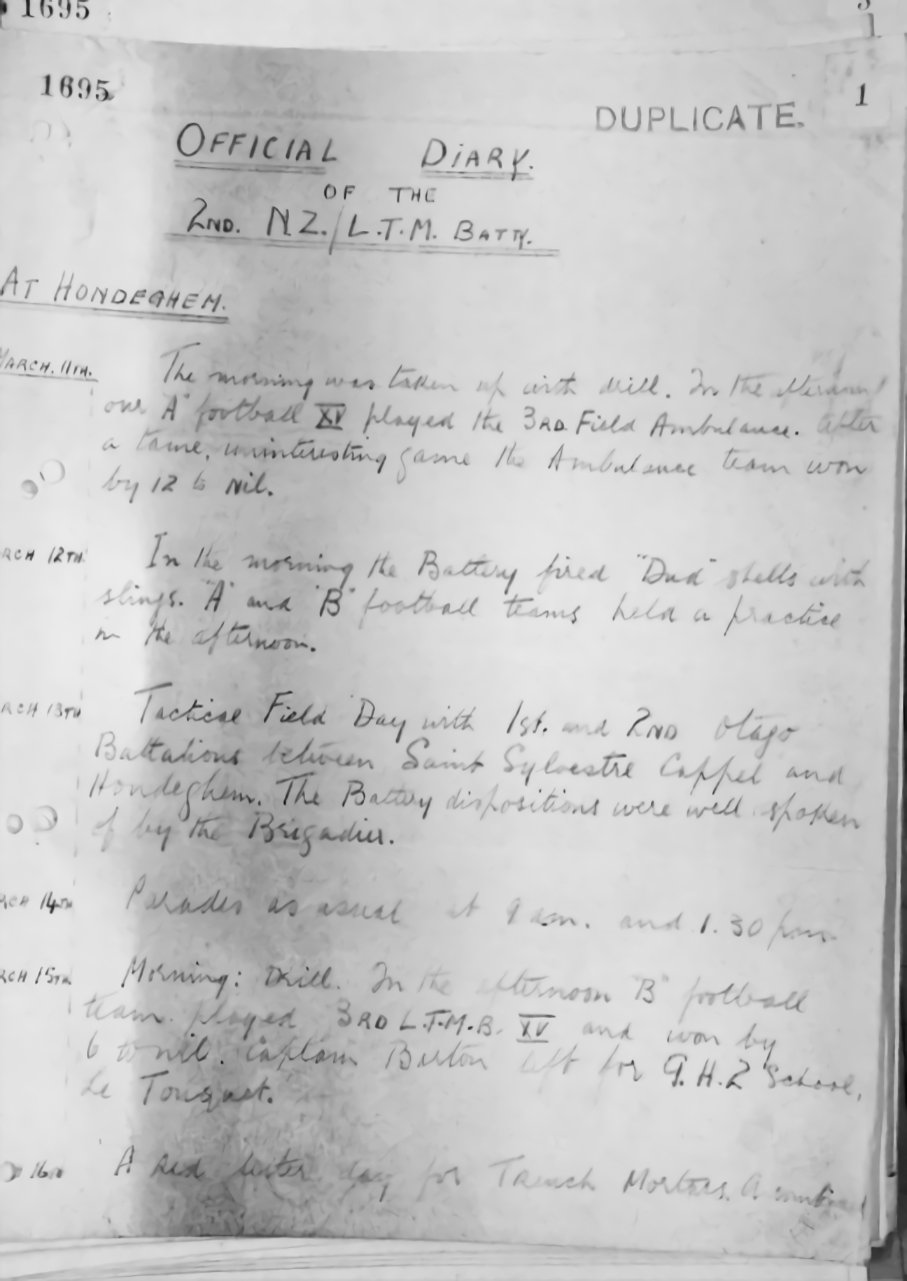 1695
1695
DUPLICATE.
1
OFFICIAL DIARY.
OF THE
2ND. N.Z. / L.T.M. BATTY.
AT HONDEGHEM.
MARCH. 11TH.
The morning was taken up with drill. In the afternoon
our "A" football XV played the 3RD Field Ambulance. After
a tame, uninteresting game the Ambulance team won
by 12 to Nil.
RCH 12TH
In the morning the Battery fired "Dud" shells with
slings. "A" and "B" football teams held a practice
in the afternoon.
RCH 13TH
Tactical Field Day with 1st. and 2ND Otago
Battalions between Saint Sylvestre Cappel and
Hondeghem. The Battery dispositions were well spoken
of by the Brigadier.
RCH 14TH
Parades as usual at 9 am. and 1.30 pm.
RCH 15TH
Morning: Drill. In the afternoon "B" football
team played 3RD L.T.M.B. XV and won by
6 to nil. Captain Burton left for G.H.Q School,
Le Touquet.
16TH
A red letter day for Trench Mortars. A